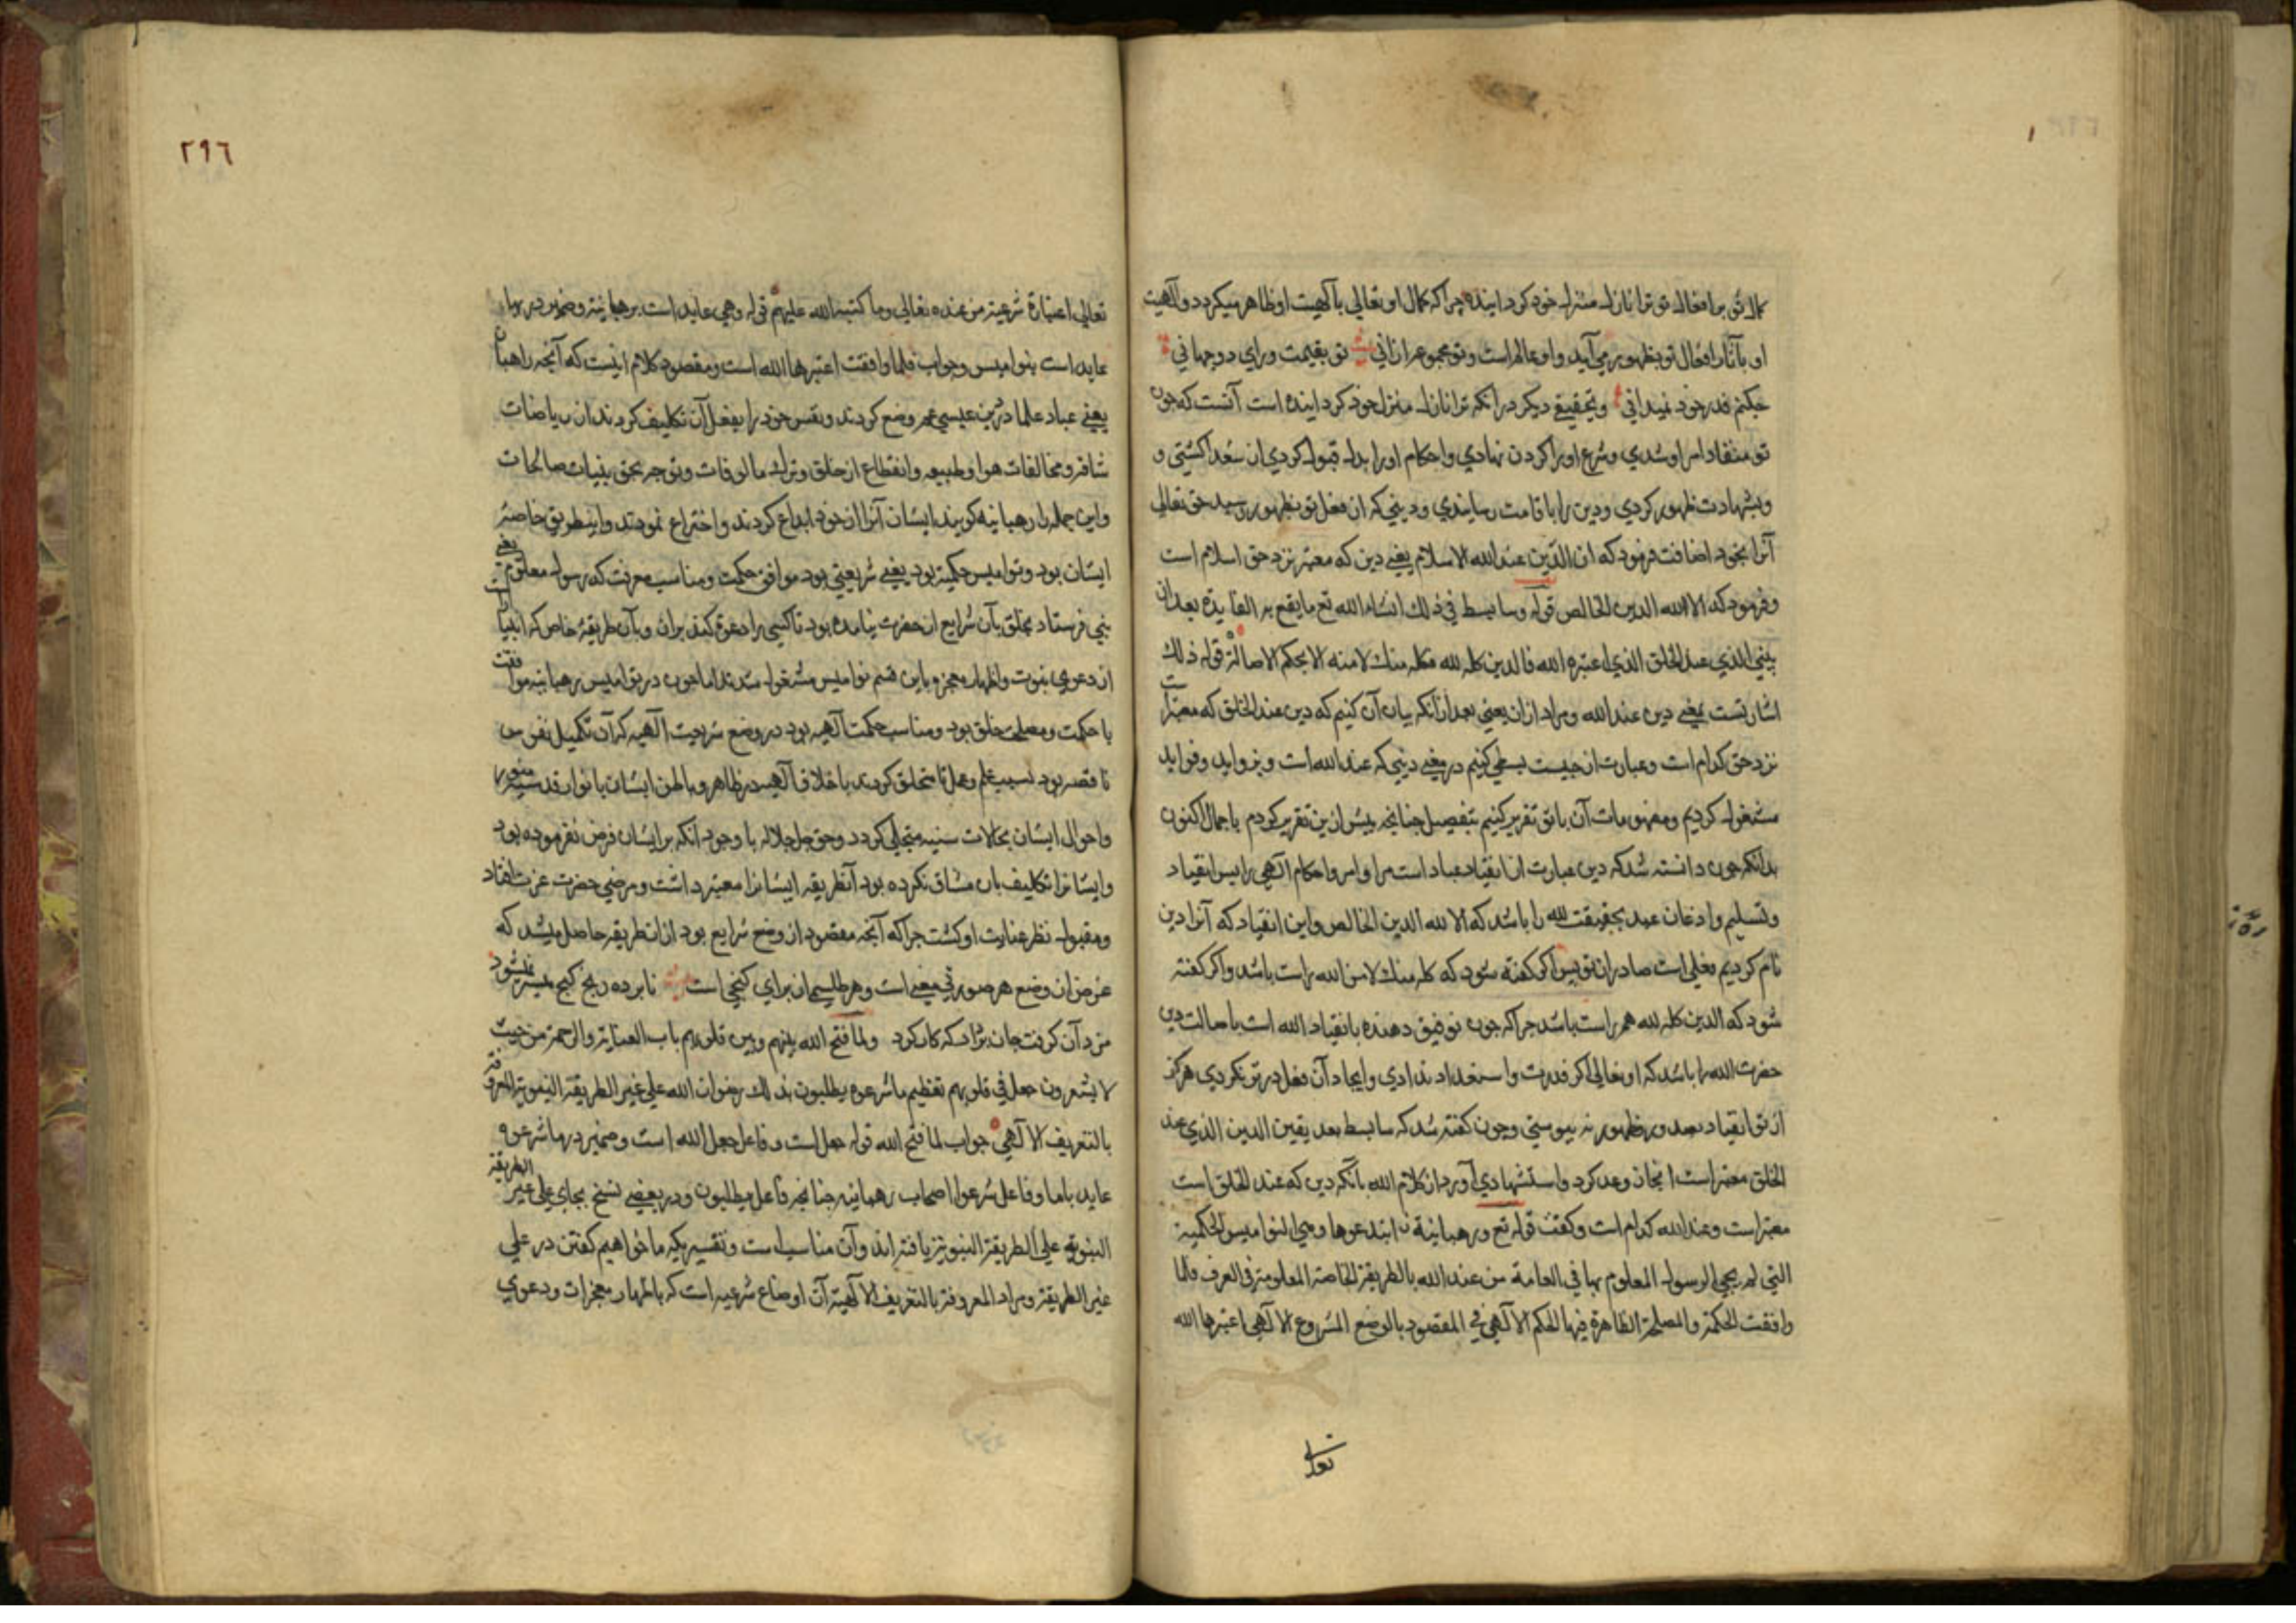 کمال تو بر افعال تو ترا نازل منزل خود کردانیده جراکه کمال او تعالی بآلهیت او ظاهر میکردد وآلهیت
او بآثار افعال تو بظهور می آید واو عالم است وتو مجموعه ازانی تو بقیمت ورای دو جهانی
جکنم قدر خود نمیدانی وتحقیقی دیکر در آنکه ترا نازل منزل خود کردانیده است آنست که جون
تو منقاد امر او شدی وشرع او را کردن نهادی واحکام او را بدل قبول کردی ازان سعدا کشتی و
وبشهادت ظهور کردی ودین را باقامت رسانیدی ودینی که ازان فعل تو بظهور رسید حق تعالی
آنرا بخود اضافت فرمود که ان الدین عند الله الاسلام یعنی دین که معتبر نزد حق اسلام است
وفرمود که الا لله الدین الخالص قوله وسابسط فی ذلک انشاء الله تع ما یقع به الفایدة بعد ان
یبنی الذی عند الخلق الذی اعتبره الله فالدین کله لله فکله منک لا منه الا بحکم الاصالة قوله ذلک
اشارتست بمعنی دین عند الله ومراد ازان یعنی بعد ازانکه بیان آن کنیم که دین عند الخلق که معتبر است
نزد حق کدام است وعبارت از جیست بسطی کنیم در معنی دینی که عند الله است وبزواید وفواید
مشغول کردیم ومفهومات آن با تو تقریر کنیم بتفصیل جنانجه بیش ازین تقریر کردم باجمال اکنون
بدانکه جون دانسته شد که دین عبارت از انقیاد عباد است مر اوامر واحکام الهی را پس انقیاد
وتسلیم واذعان عبد بحقیقت لله را باشد که الا لله الدین الخالص واین انقیاد که آنرا دین
نام کردیم فعلی است صادر از تو پس اکر کفته شود که کله منک لا من الله راست باشد واکر کفته
شود که الدین کله لله هم راست باشد جراکه جون توفیق دهنده بانقیاد الله است باصالت دین
حضرت الله را باشد که او تعالی اکر قدرت واستعداد ندادی وایجاد آن فعل در تو نکردی هرکز
از تو انقیاد بصدور وظهور نه پیوستی وجون کفته شد که سابسط بعد یقین الدین الذی عند
الخلق معتبر است انجاز وعد کرد واستشهادی آورد از کلام الله بانکه دین که عند الخلق است
معتبر است وعند الله کدام است وکفت قوله تع ورهبانیة ن ابتدعوها وهی النوامیس الحکمیة
التی لم یجی الرسول المعلوم بها فی العامة من عند الله بالطریقة الخاصة المعلومة فی العرف فلما
وافقت الحکمة والمصلحة الظاهرة فیها للحکم الآلهی فی المقصود بالوضع المشروع الآلهی اعتبرها الله
تعالی
٢٩٦
تعالی اعتبارة شرعیة من عنده تعالی وما کتبه الله علیهم قوله وهی عاید است برهبانیة وضمیر در بها
عاید است بنوامیس وجواب فلما وافقت اعتبرها الله است ومقصود کلام اینست که آنجه راهبان
یعنی عباد علما در دین عیسی عم وضع کردند ونفس خود را بفعل آن تکلیف کردند ازان ریاضات
شاقه ومخالفات هوا وطبیعه وانقطاع از خلق وترک مالوفات وتوجه بحق بنیات صالحات
واین جمله را رهبانیه کویند ایشان آنرا از خود ابداع کردند واختراع نمودند واین طریق خاصه
ایشان بود ونوامیس حکمیة بود یعنی شریعتی بود موافق حکمت ومناسب معرفت که رسول معلوم یعنی
نبی فرستاده بخلق بآن شرایع از حضرت نیامده بود تا کسی را دعوة کند بران وبآن طریقه خاص که انبیا است
از دعوی نبوت واظهار معجزه باین قسم نوامیس مشغول شدند اما جون در نوامیس رهبانیه موافقت
با حکمت ومصلحت خلق بود ومناسب حکمت آلهیه بود در وضع شریعت آلهیه که آن تکمیل نفوس
ناقصه بود بسبب علم وعمل تا متخلق کردند باخلاق آلهیه در ظاهر وباطن ایشان بانوار قدسیه منور
واحوال ایشان بحالات سنیه متجلی کردد وحق جل جلاله با وجود انکه بر ایشان فرض نفرموده بود
وایشانرا تکلیف بآن مشاق نکرده بود آن طریقه ایشانرا معتبر داشت ومرضی حضرت عزت افتاد
ومقبول نظر عنایت او کشت جراکه آنجه مقصود از وضع شرایع بود از ان طریقه حاصل میشد که
غرض از وضع هر صورتی معنی است وهر طلسم از برای کنجی است نابرده رنج کنج میسر نمیشود
مزد آن کرفت جان برادر که کار کرد ولما فتح الله بینهم وبین قلوبهم باب العنایة والرحمة من حیث
لا یشعرون جعل فی قلوبهم تعظیم ما شرعوه یطلبون بذلک رضوان الله علی غیر الطریقة النبویة المعروفة
بالتعریف الآلهی جواب لما فتح الله قوله جعل است وفاعل جعل الله است وضمیر در ما شرعوه
عاید باما وفاعل شرعوا اصحاب رهبانیه جنانجه فاعل یطلبون ودر بعضی نسخ بجای علی غیر الطریقة
النبویة علی الطریقة النبویة یافته اند وآن مناسب است وتفسیریکه ما خواهیم کفتن در علی
غیر الطریقة ومراد المعروفة بالتعریف الآلهیة آن اوضاع شرعیه است که باظهار معجزات ودعوی